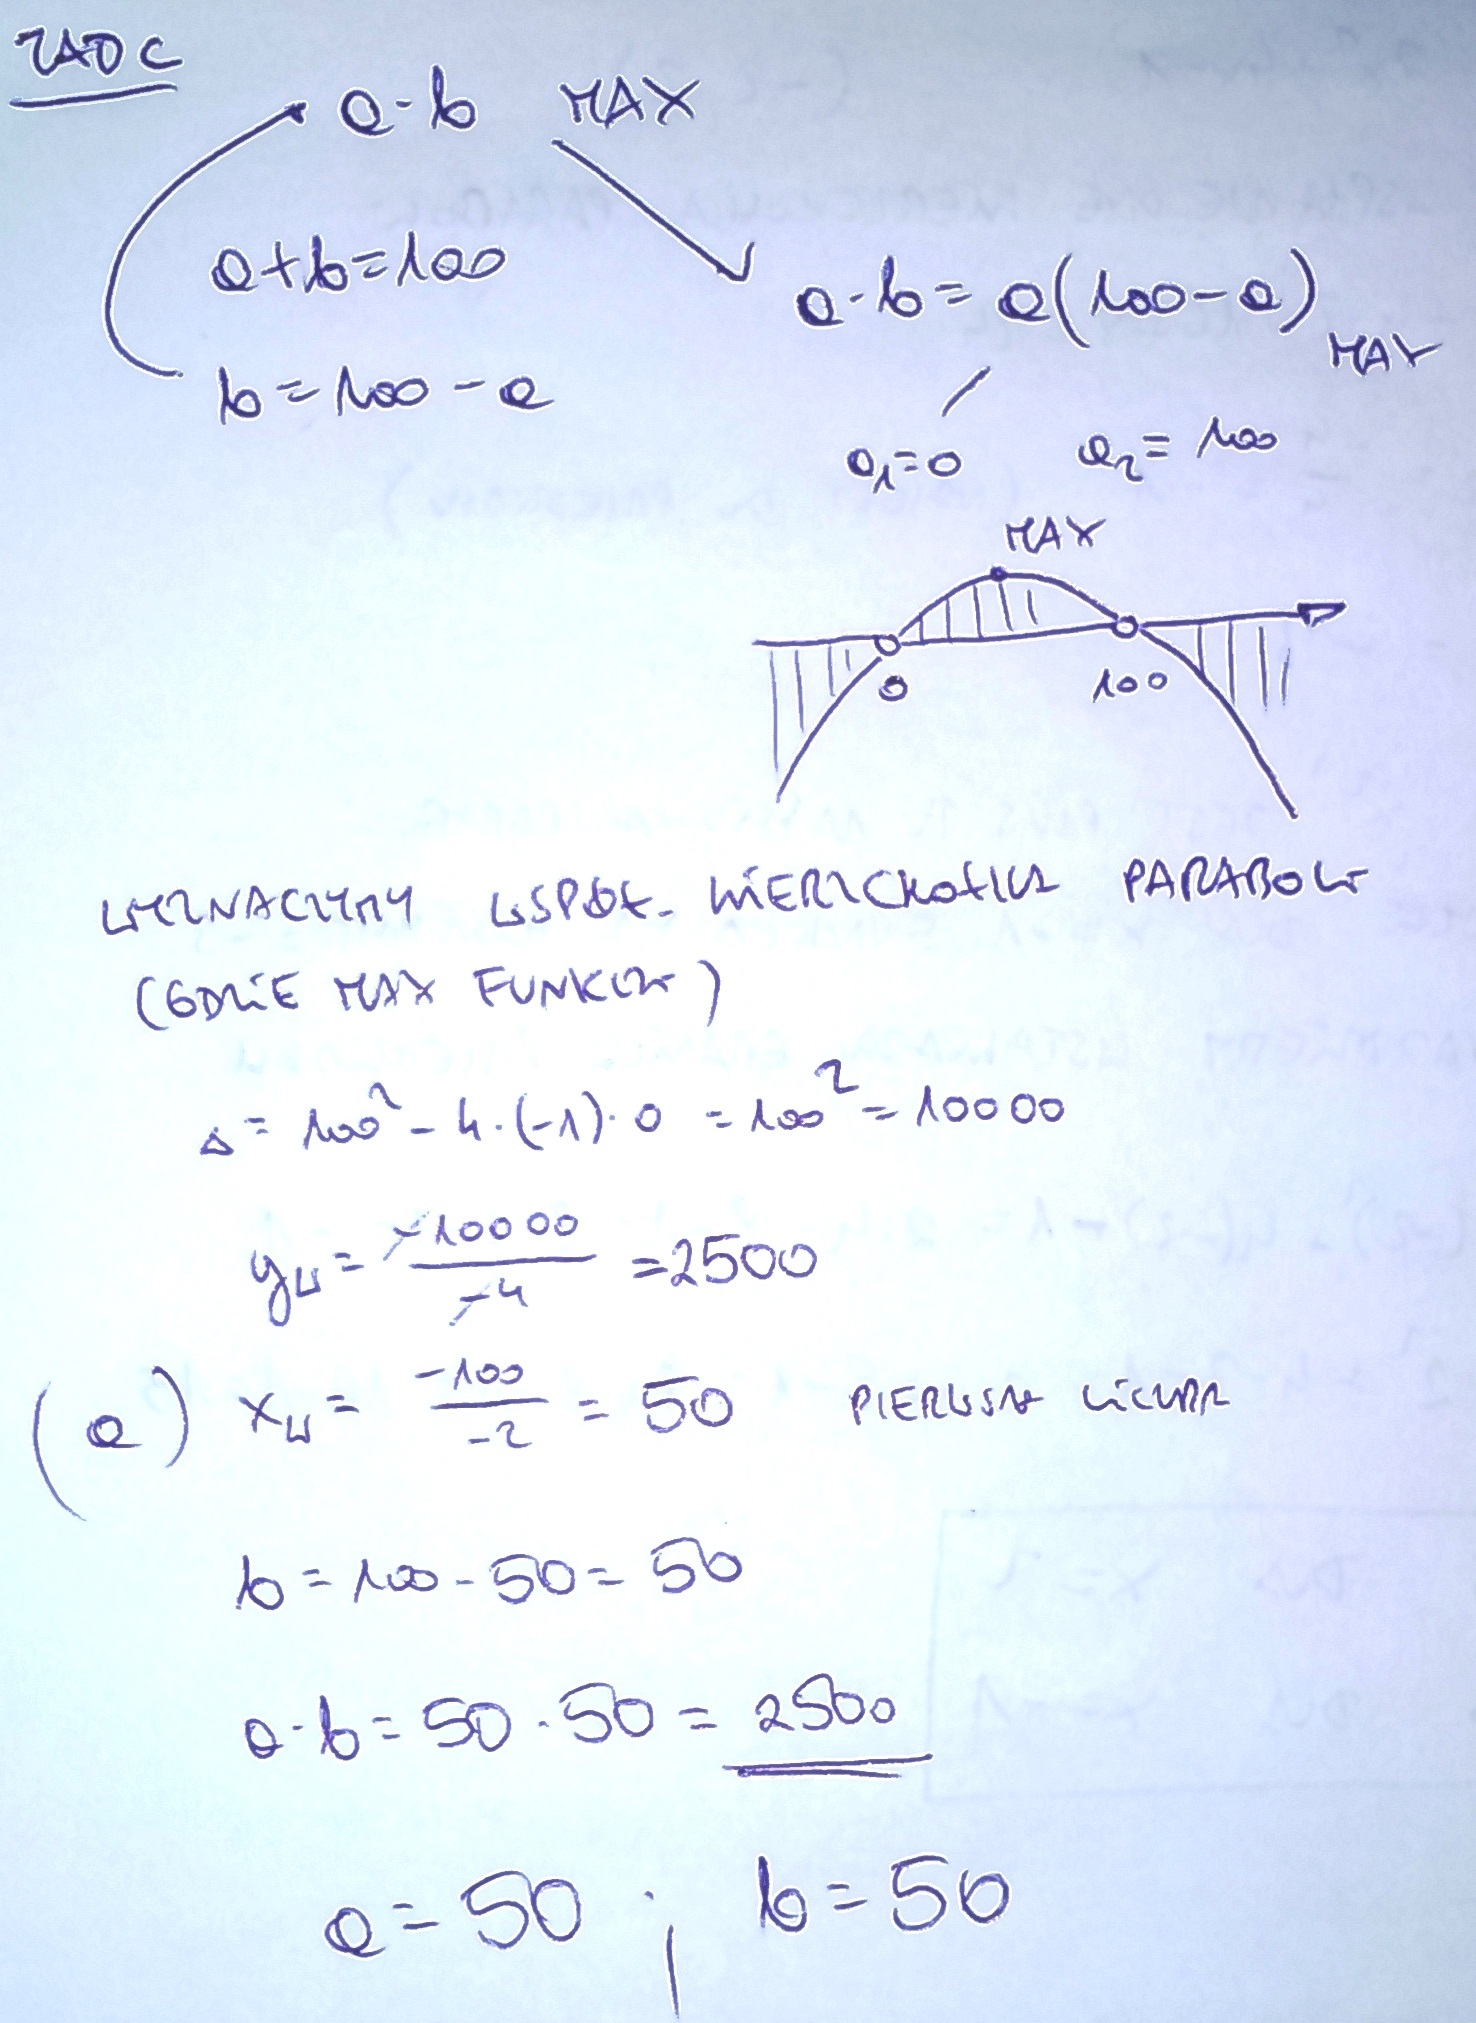 ZAD C
a·b MAX
a+b=100
b=100-a
a·b=a(100-a) MAX
a₁=0 a₂=100
MAX
0 100
WYZNACZYMY WSPÓŁ. WIERZCHOŁKA PARABOLI
(GDZIE MAX FUNKCJI)
Δ=100²-4·(-1)·0=100²=10000
yw=-10000/-4=2500
(a) xw=-100/-2=50 PIERWSZA LICZBA
b=100-50=50
a·b=50·50=2500
a=50; b=50